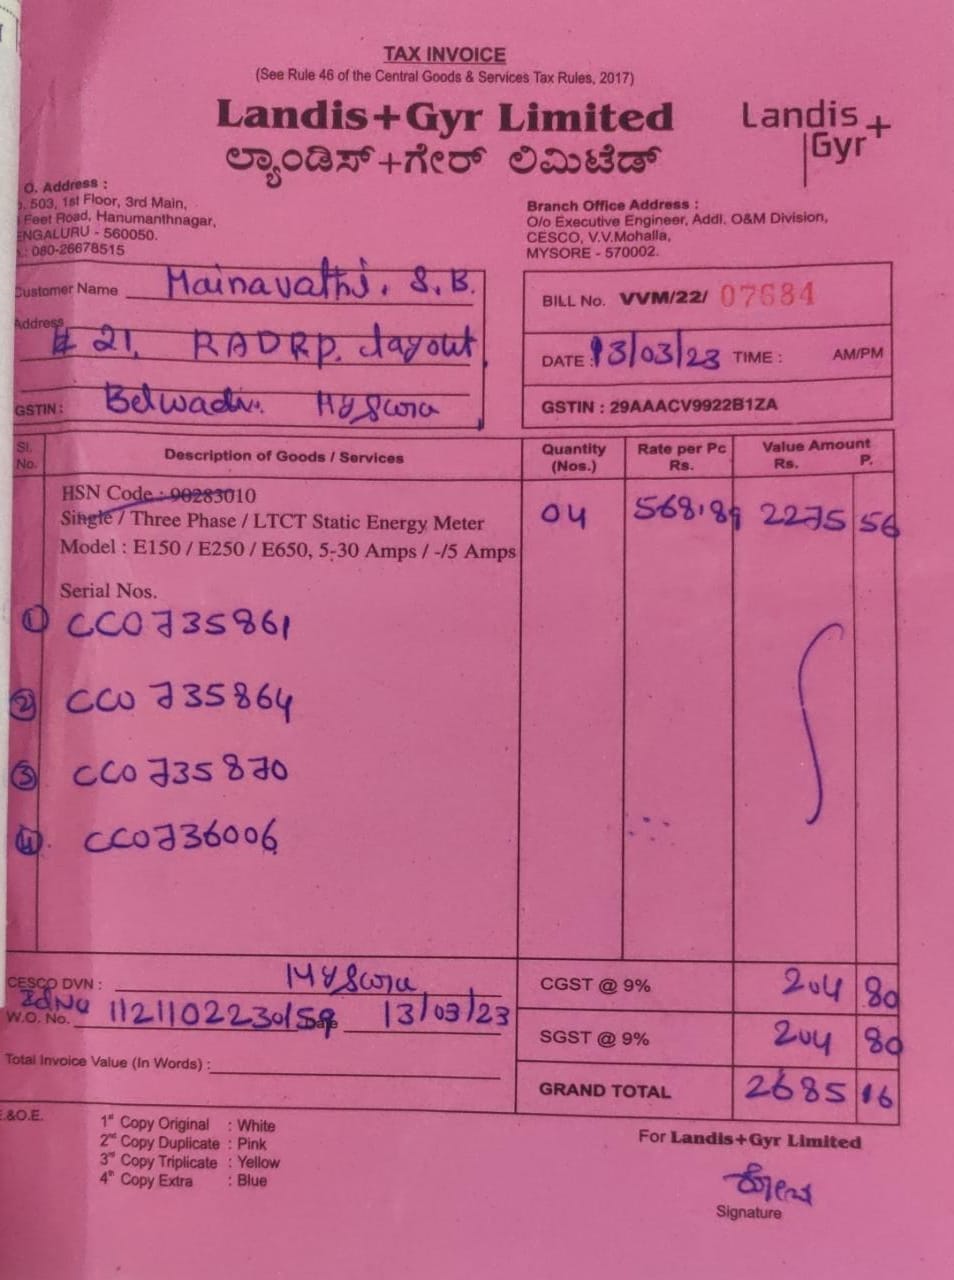 TAX INVOICE
(See Rule 46 of the Central Goods & Services Tax Rules, 2017)
Landis+Gyr Limited
ಲ್ಯಾಂಡಿಸ್+ಗೇರ್ ಲಿಮಿಟೆಡ್
Landis+
Gyr
O. Address :
503, 1st Floor, 3rd Main,
Feet Road, Hanumanthnagar,
ENGALURU - 560050.
: 080-26678515
Branch Office Address :
O/o Executive Engineer, Addl. O&M Division,
CESCO, V.V.Mohalla,
MYSORE - 570002.
Customer Name Mainavathi. S.B.
Address # 21, RADRP. layout
GSTIN : Belwadi. Mysore
BILL No. VVM/22/ 07684
DATE : 13/03/23 TIME : AM/PM
GSTIN : 29AAACV9922B1ZA
Sl. No. Description of Goods / Services Quantity (Nos.) Rate per Pc Rs. Value Amount Rs. P.
HSN Code : 90283010
Single / Three Phase / LTCT Static Energy Meter 04 568.89 2275 56
Model : E150 / E250 / E650, 5-30 Amps / -/5 Amps
Serial Nos.
1 CC0735861
2 CC0735864
3 CC0735870
4 CC0736006
CESCO DVN : Mysore
W.O. No. 1121102230159 Date 13/03/23
Total Invoice Value (In Words) :
CGST @ 9% 204 80
SGST @ 9% 204 80
GRAND TOTAL 2685 16
E.&O.E.
1st Copy Original : White
2nd Copy Duplicate : Pink
3rd Copy Triplicate : Yellow
4th Copy Extra : Blue
For Landis+Gyr Limited
Signature